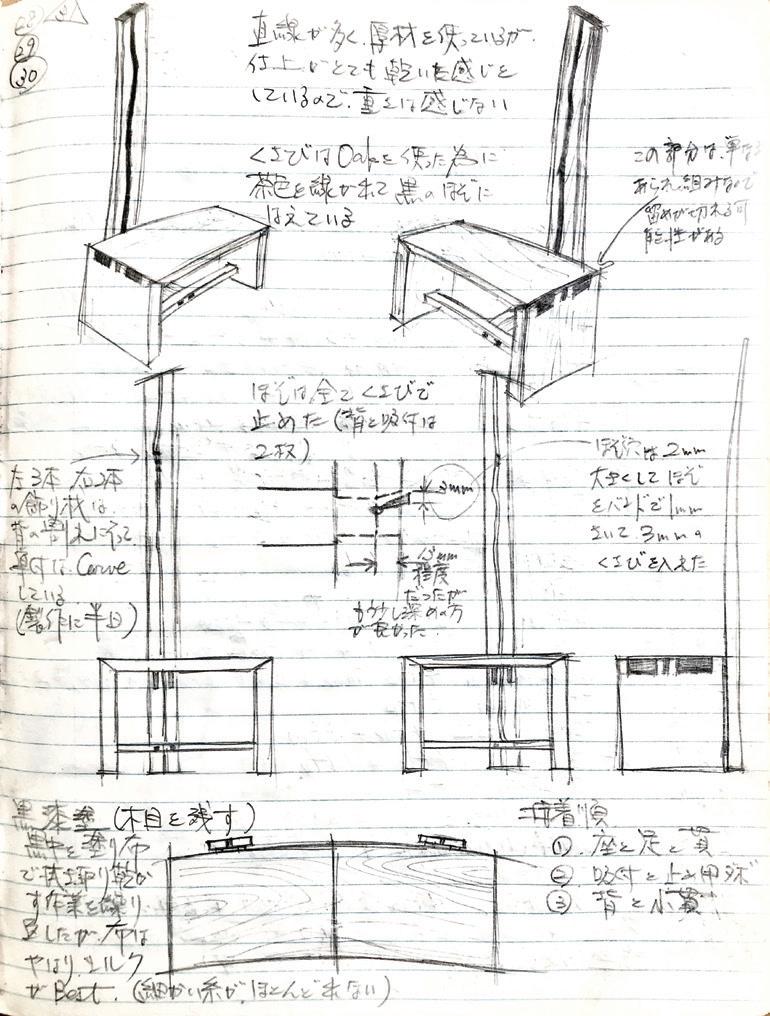 28
29
30
直線が多く、厚材を使っているが
仕上がとても乾いた感じを
しているので、重くは感じない
くさびはOakを使った為に
茶色を線が来て黒のほぞに
はえている
この部分は、単なる
あられ組みなので
留めが切れる可
能性がある
ほぞは全てくさびで
止めた(背と吸付は
2枚)
左3本 右2本
の飾り材は
背の割れに沿って
Curve
している
(製作に半日)
3mm
ほぞ穴は2mm
大きくしてほぞ
をバンドで1mm
さいて3mmの
くさびを入れた
15mm
程度
だったが
もう少し深めの方
が良かった
黒漆塗(木目を残す)
黒中を塗り布
で拭き取り乾か
す作業を繰り
返したが、布は
やはりシルク
がBest.(細かい糸が、ほとんど出ない)
接着順
① 座と足と貫
② 吸付と止め用ダボ
③ 背と小貫